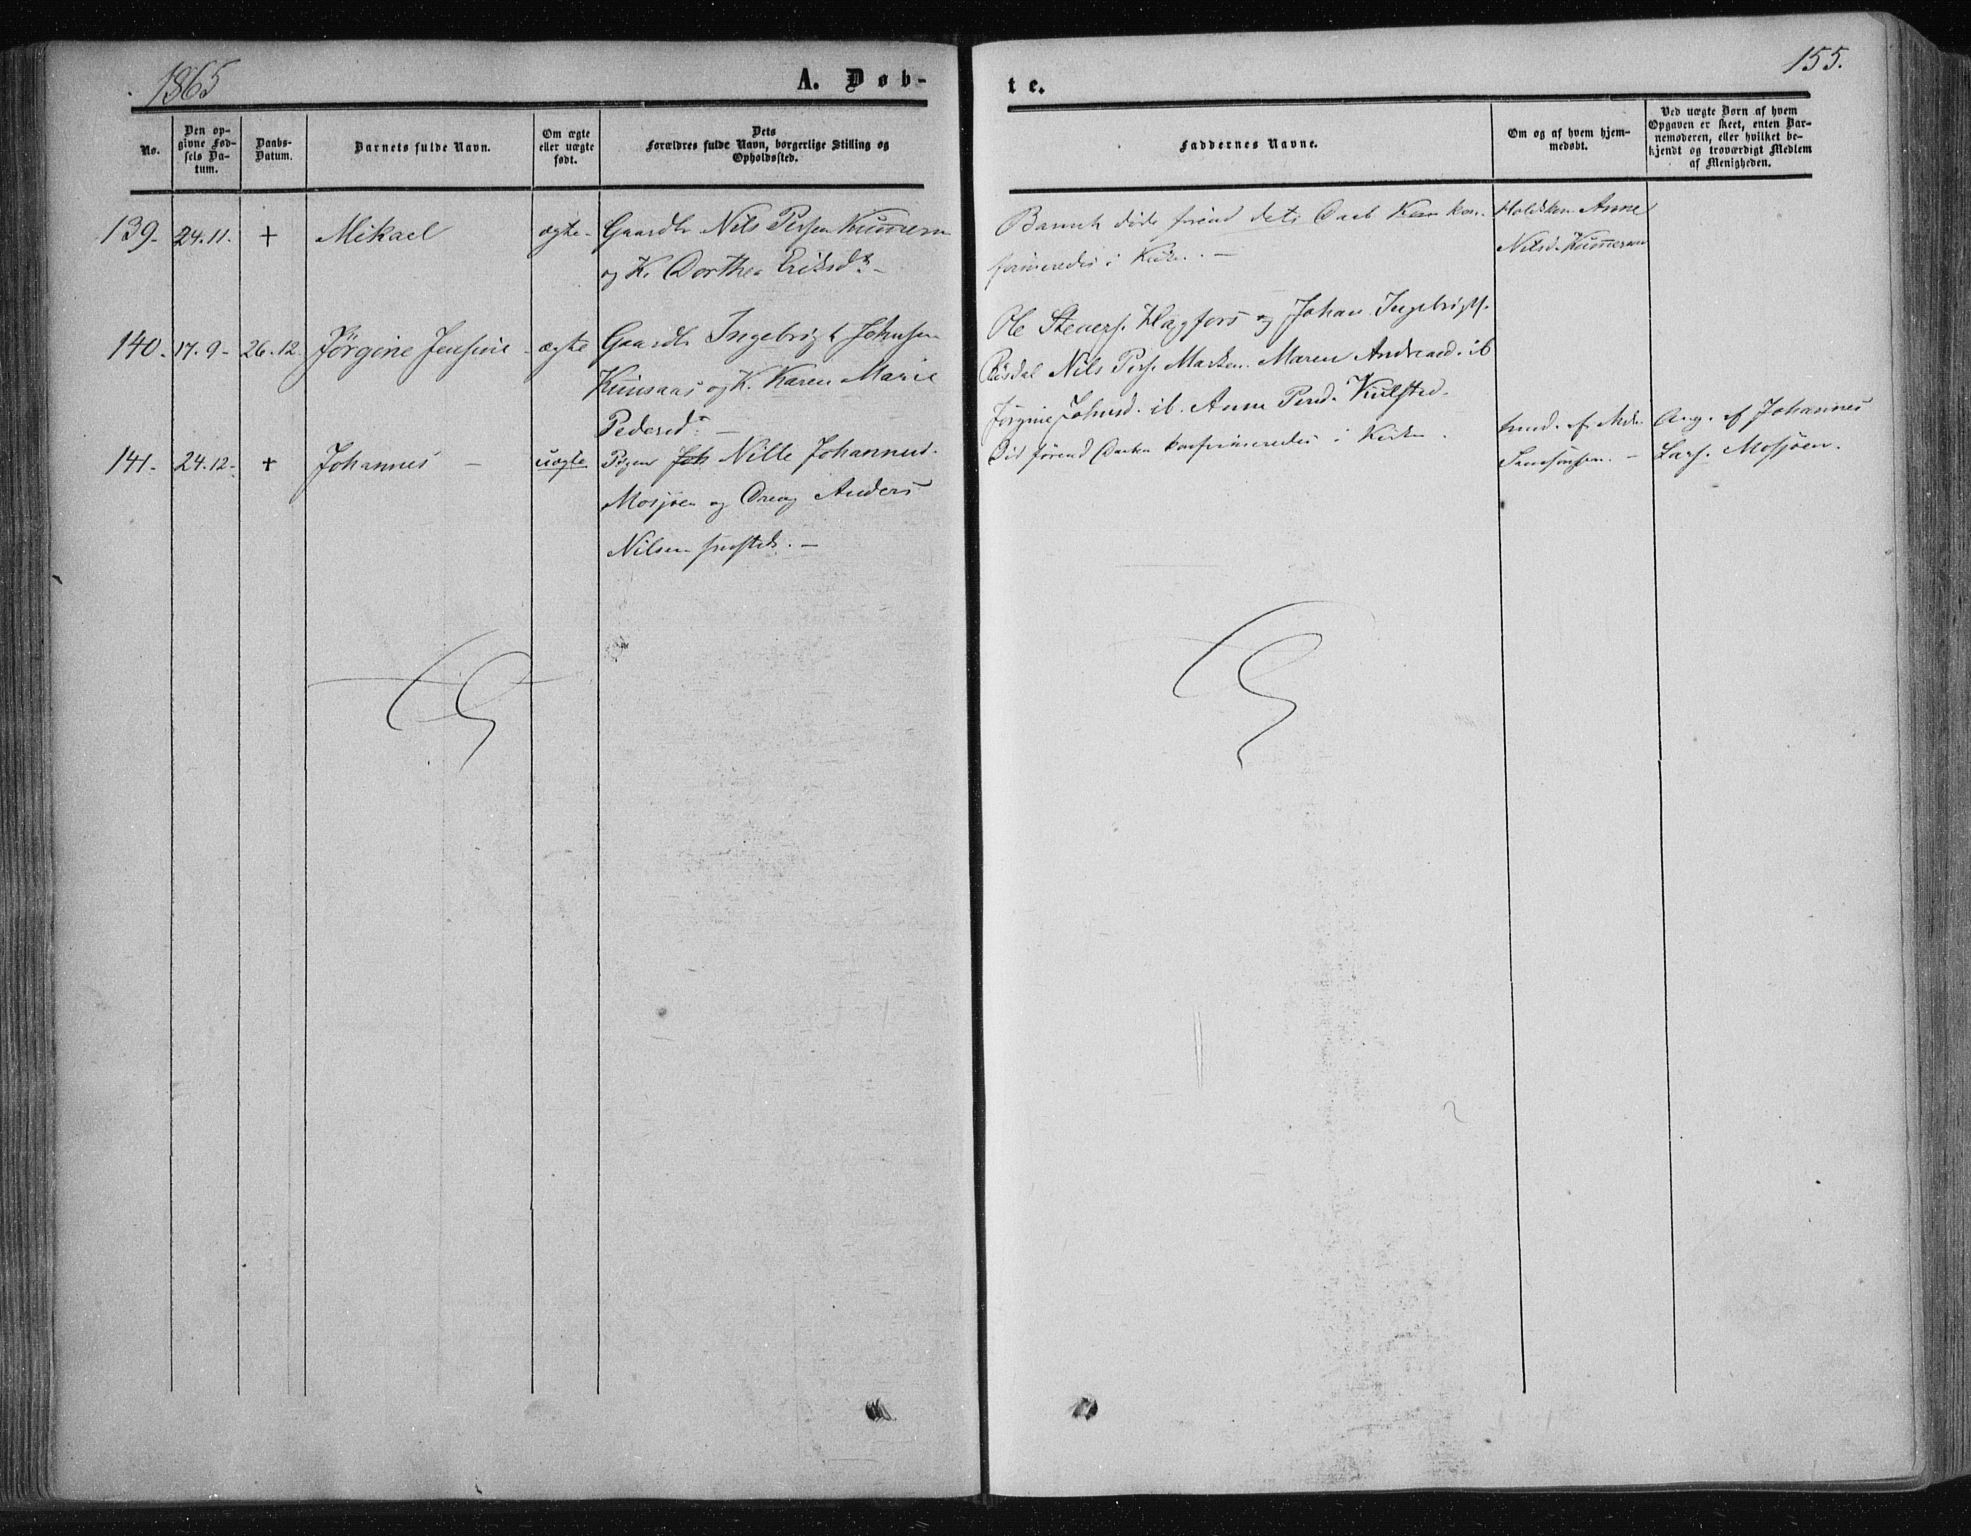 1865
A. Døb-
te.
155.
No.
Den op-
givne Fød-
sels Da-
tum.
Daabs-
Datum.
Barnets fulde Navn.
Om ægte
eller uægte
født.
Dets
Forældres fulde Navn, borgerlige Stilling og
Opholdssted.
Faddernes Navne.
Om og af hvem hjem-
medøbt.
Ved uægte Børn af hvem
Opgaven er skeet, enten Bar-
nemoderen, eller hvilket be-
kjendt og troværdigt Medlem
af Menigheden.
139. 24.11. + Mikael ægte
Gaardbr Nils Persen
og K. Dorthea Eriksdr. –
Barnet døde førend dets Daab kon-
firmeredes i Kirken. –
Anne
Nilsd.
140. 17.9 26.12. Jørgine Jensine ægte
Gaardbr Ingebrigt Johnsen
og K. Karen Marie
Pedersdr. –
Ole og Johan Ingebrigts.
Nils Pers. Marken. Maren Andreasd. ib
Jørgine Johnsd. ib. Anne Persd. Kulsted.
141. 24.12. + Johannes – uægte
Pigen Joh Nille Johannesd.
Mosjøen og Anders
Nilsen –
Død førend Daaben konfirmeredes i Kirken.
af
–
Ang. af Johannes
Lars. Mosjøen.